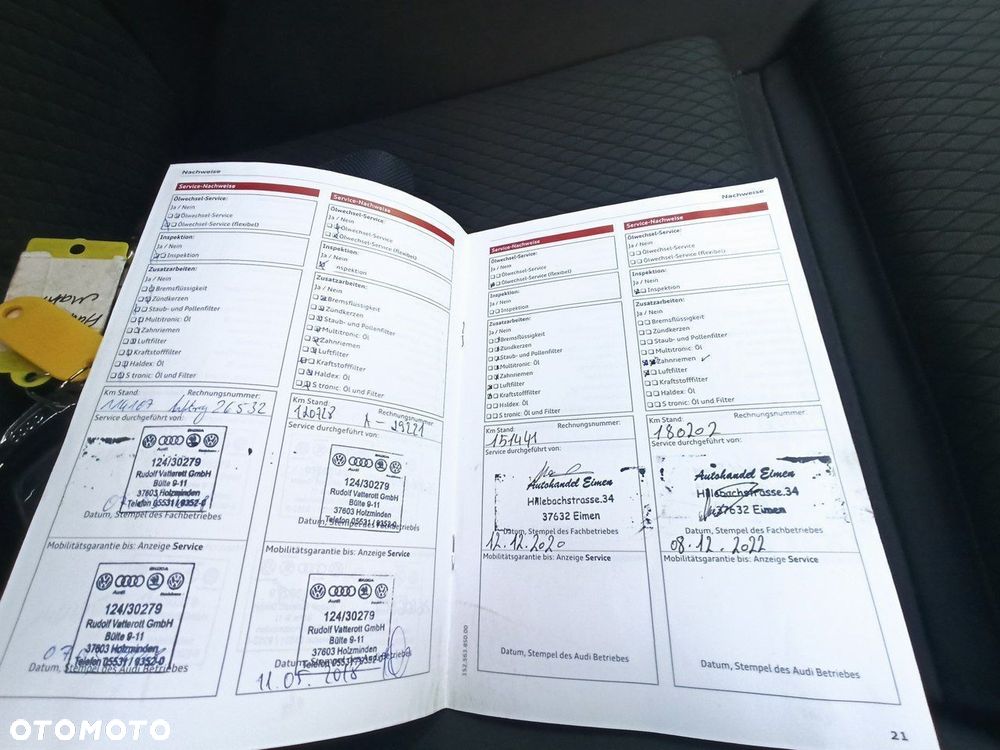 Nachweise
Service-Nachweise
Ölwechsel-Service:
Ja / Nein
Ölwechsel-Service
Ölwechsel-Service (flexibel)
Inspektion:
Ja / Nein
Inspektion
Zusatzarbeiten:
Ja / Nein
Bremsflüssigkeit
Zündkerzen
Staub- und Pollenfilter
Multitronic: Öl
Zahnriemen
Luftfilter
Kraftstofffilter
Haldex: Öl
S tronic: Öl und Filter
Km Stand: Rechnungsnummer:
114107 26532
Service durchgeführt von:
SKODA
Audi
124/30279
Rudolf Vatterott GmbH
Bülte 9-11
37603 Holzminden
Telefon 05531/9352-0
Datum, Stempel des Fachbetriebes
Mobilitätsgarantie bis: Anzeige Service
SKODA
Audi
124/30279
Rudolf Vatterott GmbH
Bülte 9-11
37603 Holzminden
Telefon 05531/9352-0
Datum, Stempel des Audi Betriebes
Service-Nachweise
Ölwechsel-Service:
Ja / Nein
Ölwechsel-Service
Ölwechsel-Service (flexibel)
Inspektion:
Ja / Nein
Inspektion
Zusatzarbeiten:
Ja / Nein
Bremsflüssigkeit
Zündkerzen
Staub- und Pollenfilter
Multitronic: Öl
Zahnriemen
Luftfilter
Kraftstofffilter
Haldex: Öl
S tronic: Öl und Filter
Km Stand: Rechnungsnummer:
120728 A-29221
Service durchgeführt von:
SKODA
Audi
124/30279
Rudolf Vatterott GmbH
Bülte 9-11
37603 Holzminden
Telefon 05531/9352-0
Datum, Stempel des Fachbetriebes
Mobilitätsgarantie bis: Anzeige Service
SKODA
Audi
124/30279
Rudolf Vatterott GmbH
Bülte 9-11
37603 Holzminden
Telefon 05531/9352-0
Datum, Stempel des Audi Betriebes
11.05.2018
Nachweise
Service-Nachweise
Ölwechsel-Service:
Ja / Nein
Ölwechsel-Service
Ölwechsel-Service (flexibel)
Inspektion:
Ja / Nein
Inspektion
Zusatzarbeiten:
Ja / Nein
Bremsflüssigkeit
Zündkerzen
Staub- und Pollenfilter
Multitronic: Öl
Zahnriemen
Luftfilter
Kraftstofffilter
Haldex: Öl
S tronic: Öl und Filter
Km Stand: Rechnungsnummer:
151441
Service durchgeführt von:
Autohandel Eimen
Hillebachstrasse.34
37632 Eimen
Datum, Stempel des Fachbetriebes
12.12.2020
Mobilitätsgarantie bis: Anzeige Service
Datum, Stempel des Audi Betriebes
Service-Nachweise
Ölwechsel-Service:
Ja / Nein
Ölwechsel-Service
Ölwechsel-Service (flexibel)
Inspektion:
Ja / Nein
Inspektion
Zusatzarbeiten:
Ja / Nein
Bremsflüssigkeit
Zündkerzen
Staub- und Pollenfilter
Multitronic: Öl
Zahnriemen
Luftfilter
Kraftstofffilter
Haldex: Öl
S tronic: Öl und Filter
Km Stand: Rechnungsnummer:
180202
Service durchgeführt von:
Autohandel Eimen
Hillebachstrasse.34
37632 Eimen
Datum, Stempel des Fachbetriebes
08.12.2022
Mobilitätsgarantie bis: Anzeige Service
Datum, Stempel des Audi Betriebes
152.563.850.00
21
OTOMOTO